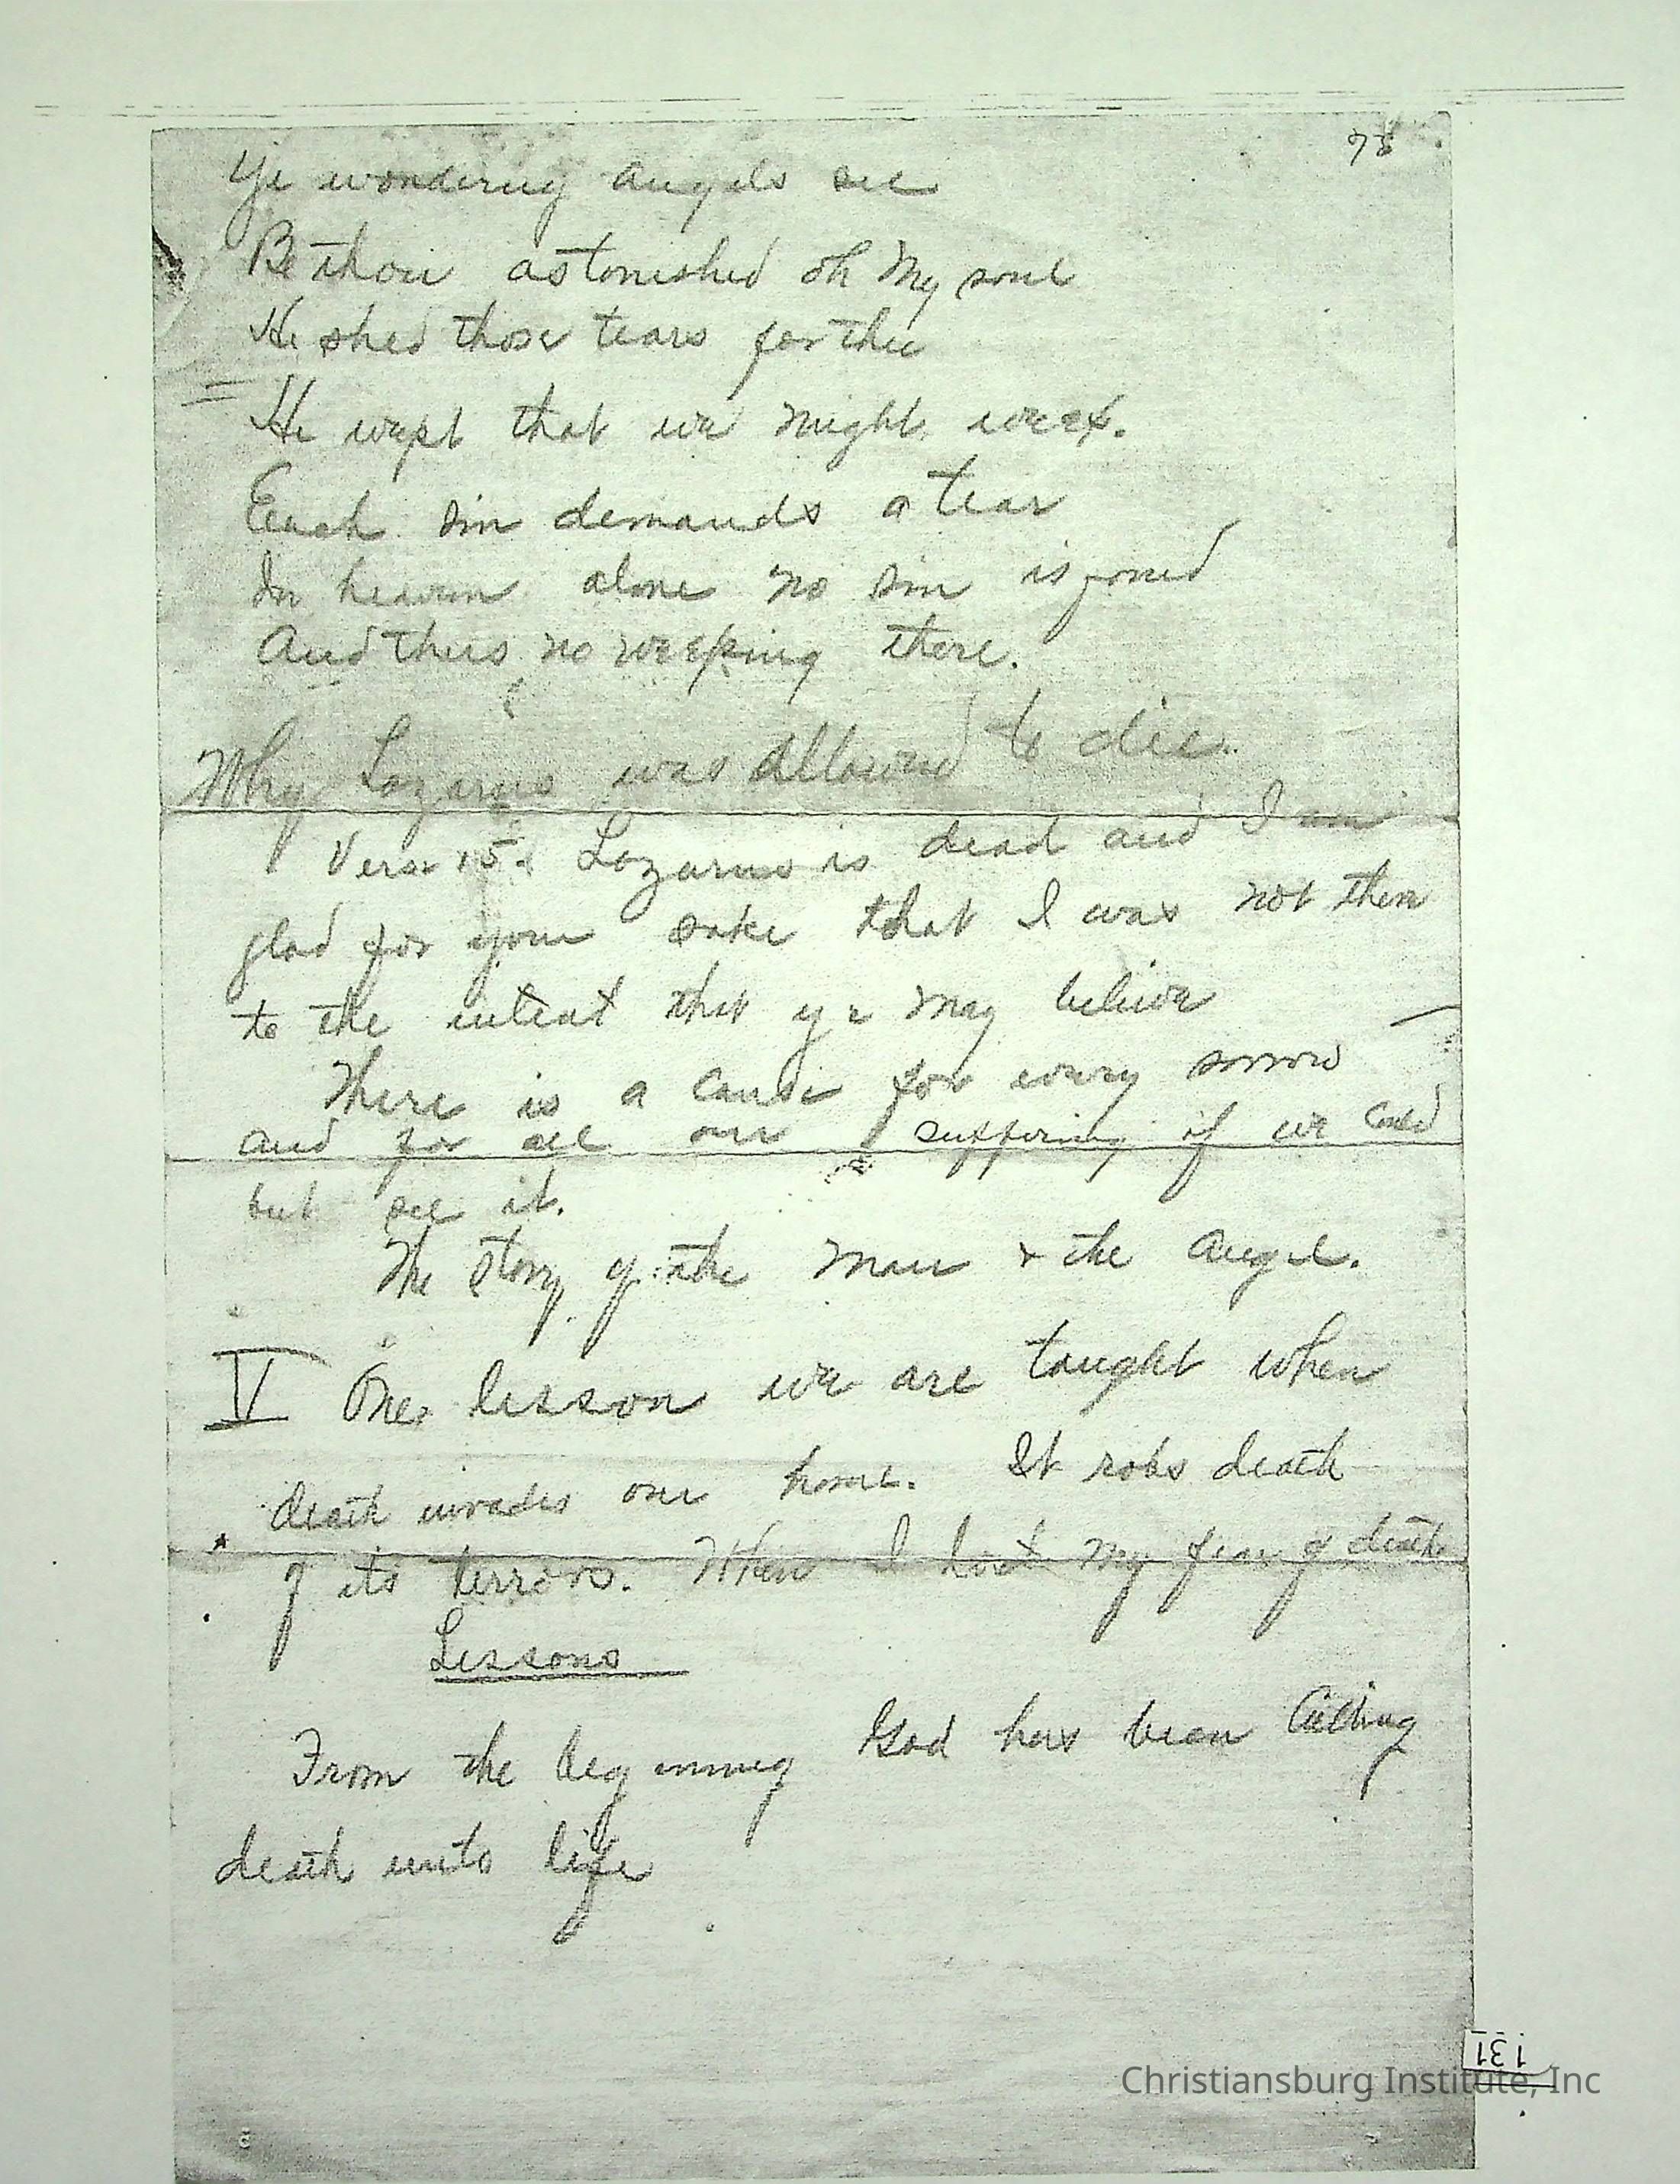 78
Ye wondering angels see
Be thou astonished oh My soul
He shed those tears for thee
He wept that we might weep.
Eeach sin demands a tear
In heaven alone no sin is
And thus no weeping there.
Why Lazarus was allowed to die.
Verse 15. Lazarus is dead and I am
glad for your sake that I was not there
to the intent that ye may believe
There is a cause for every sorrow
and for all our suffering if we could
but see it.
The story of the man & the angel.
V One lesson we are taught when
death invades our home. It robs death
of its terrors. When I lost my fear of death
Lessons
From the beginning God has been calling
death unto life
131
Christiansburg Institute, Inc